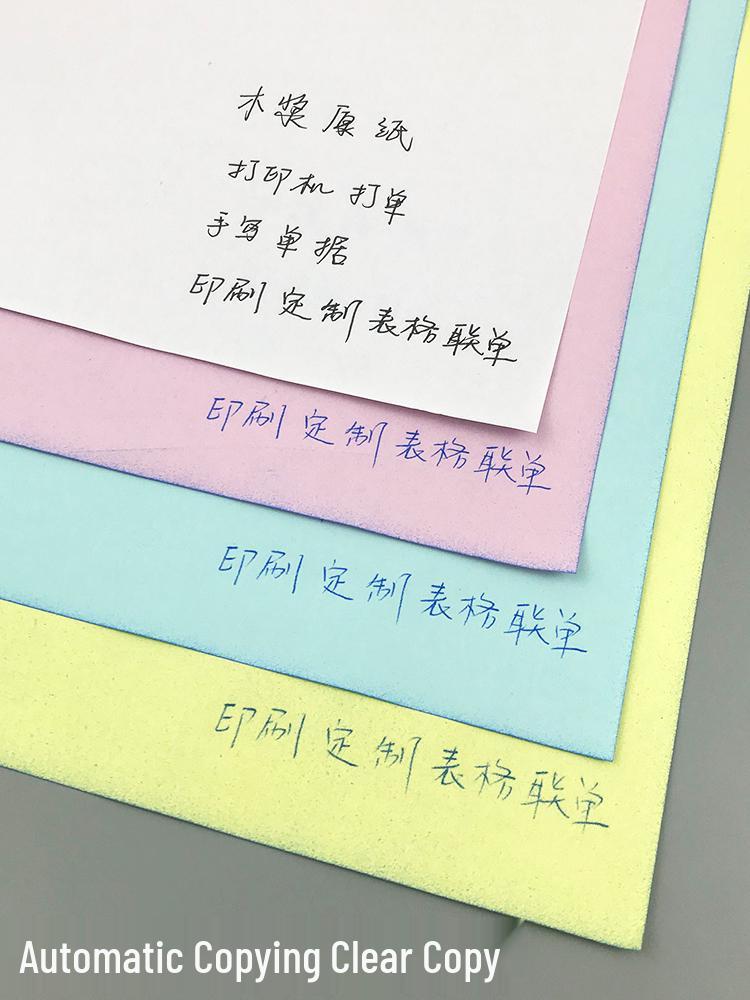 木浆原纸
打印机 打单
手写单据
印刷定制表格联单
印刷定制表格联单
印刷定制表格联单
印刷定制表格联单
Automatic Copying Clear Copy